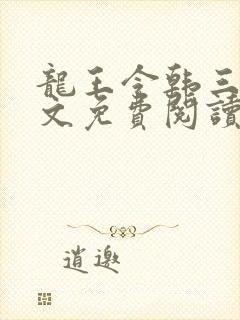 龍王令韩三
文免費閱讀
逍遨